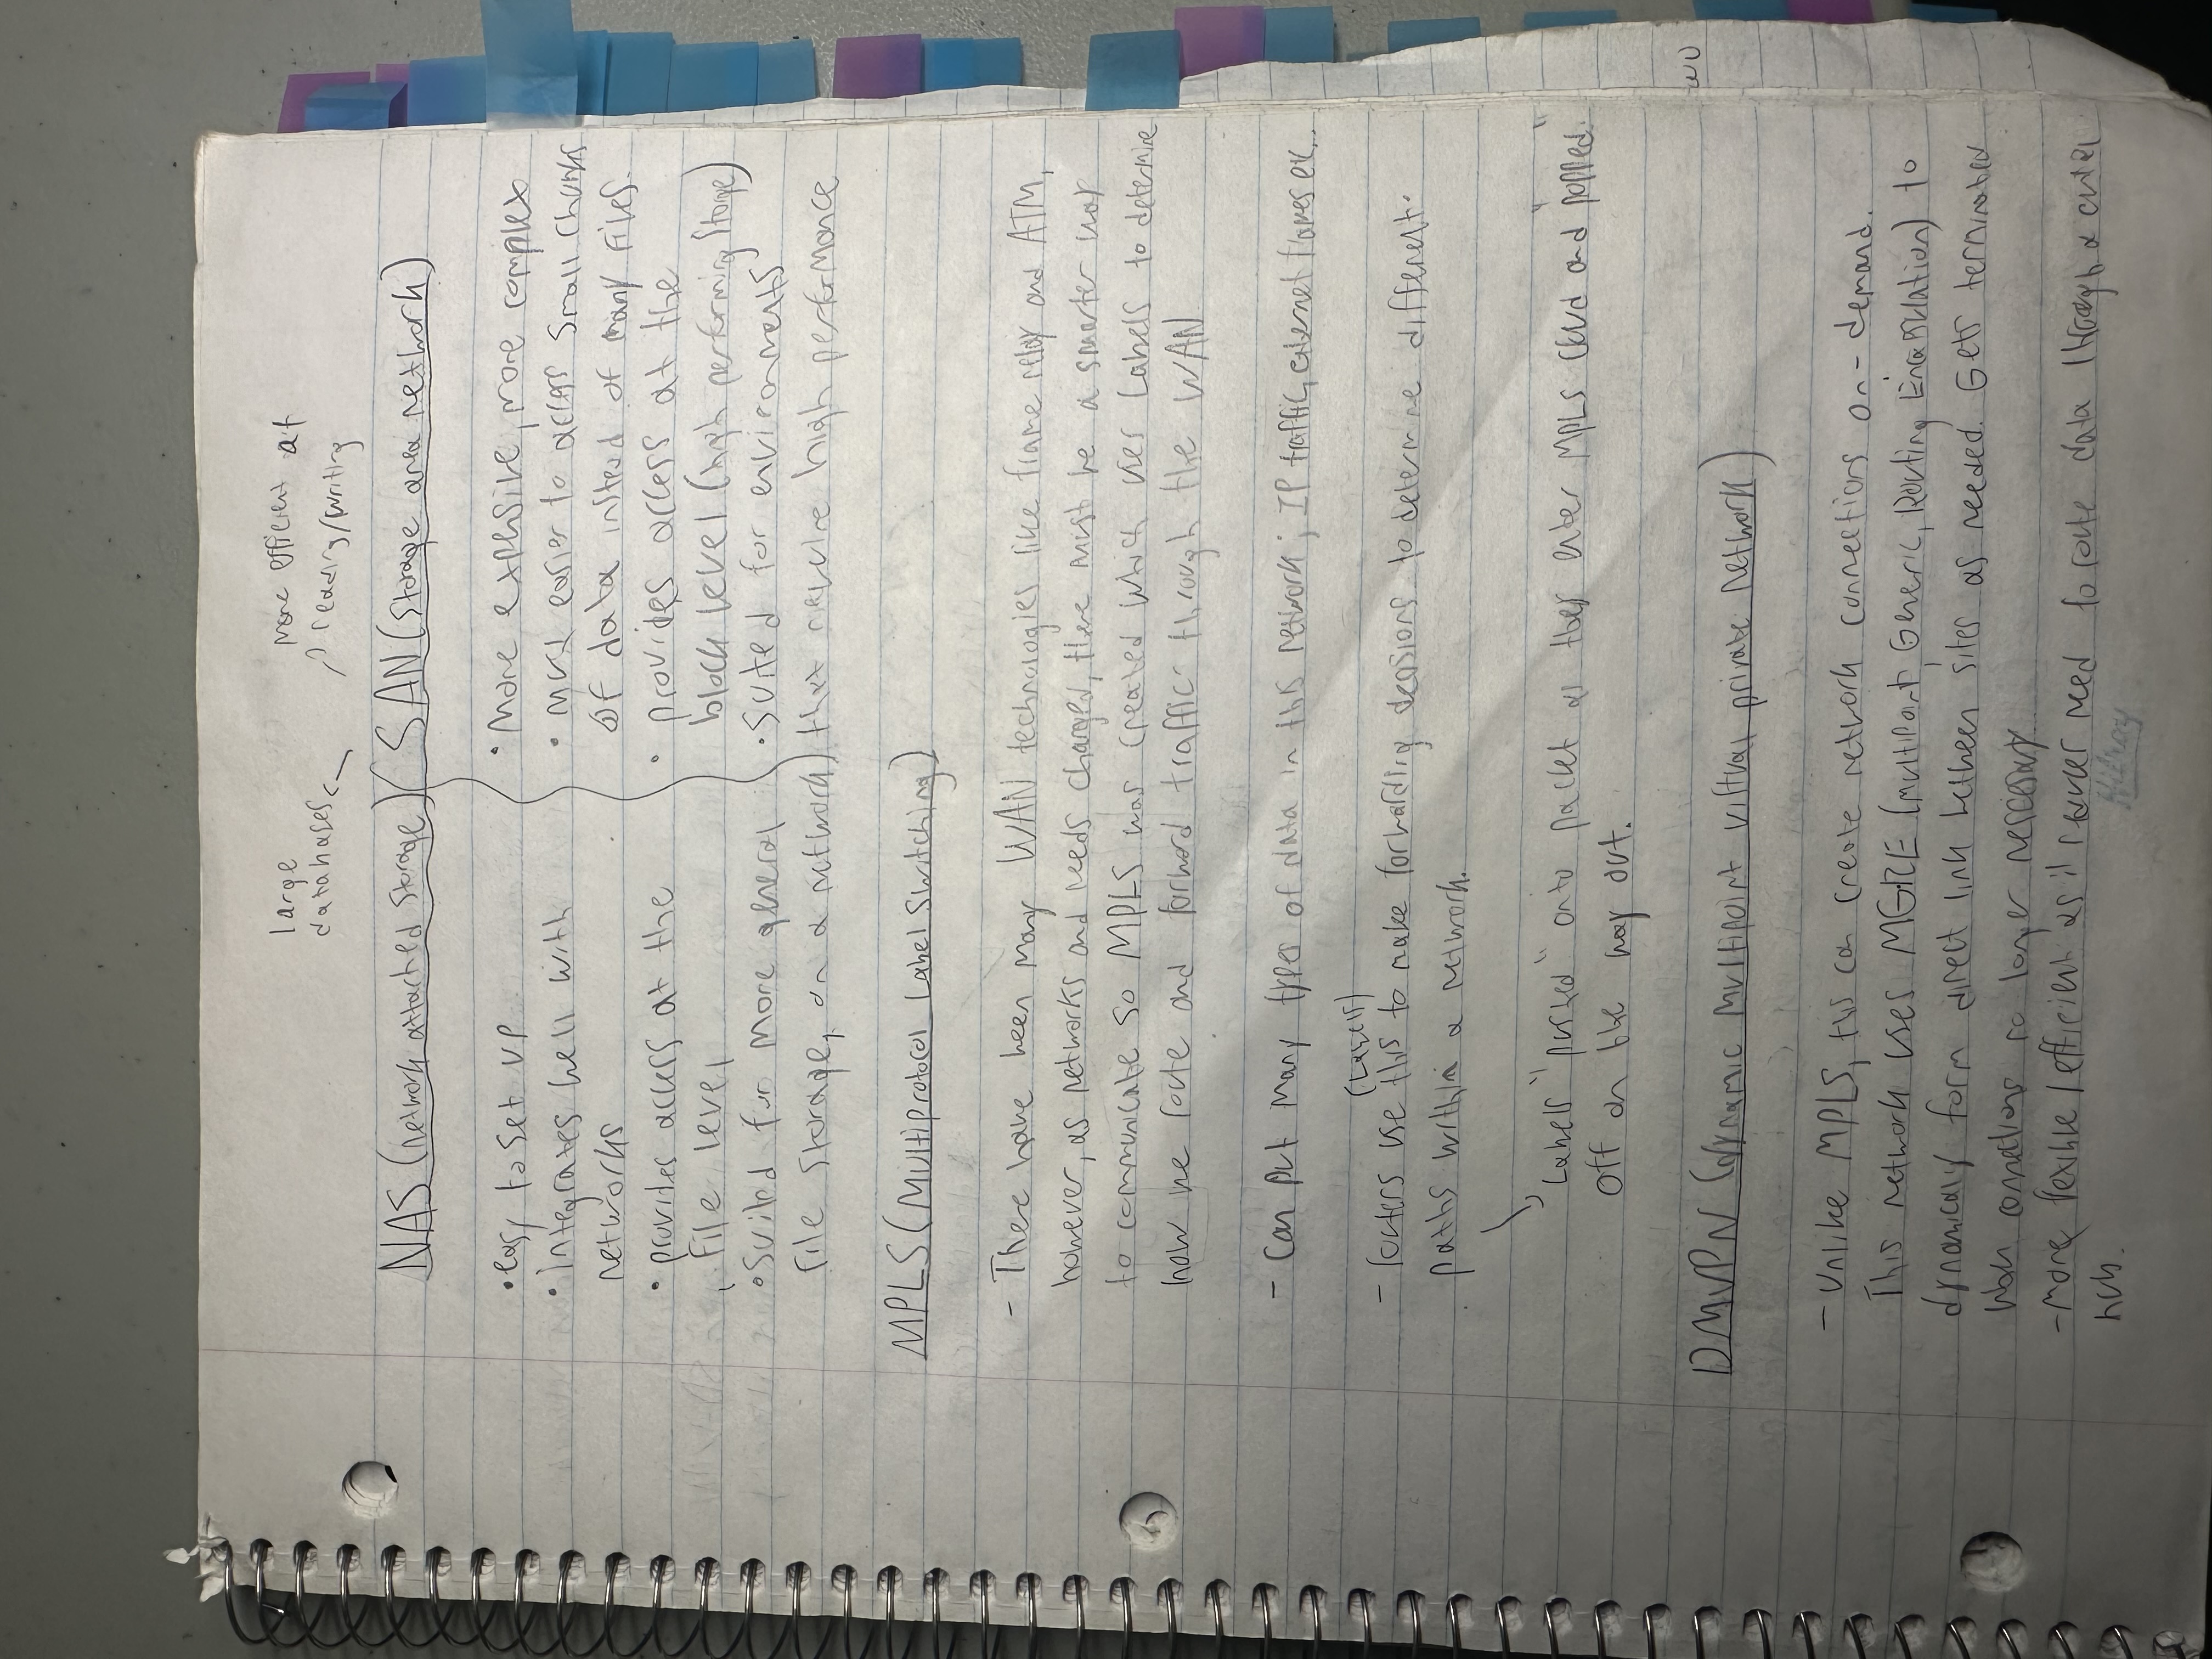 large
databases
more efficient at
reading/writing
NAS (network attached storage)
SAN (Storage area network)
• easy to set up
• integrates well with
networks
• provides access at the
file level
• Suited for more general
file storage, on a network
• More expensive, more complex
• much easier to access small chunks
of data instead of many files.
• provides access at the
block level (high performing storage)
• Suited for environments
that require high performance
MPLS (Multiprotocol Label Switching)
- There have been many WAN technologies like frame relay and ATM,
however, as networks and needs changed, there must be a smarter way
to communicate so MPLS was created which uses Labels to determine
how we route and forward traffic through the WAN
- Can put many types of data in this network; IP traffic, ethernet frames etc..
(Labels)
- routers use this to make forwarding decisions to determine different
paths within a network.
Labels "pushed" onto packet as they enter MPLS cloud and "popped"
off on the way out.
DMVPN (dynamic multipoint virtual private network)
- Unlike MPLS, this can create network connections on-demand.
This network uses MGRE (multipoint, Generic, Routing Encapsulation) to
dynamically form direct link between sites as needed. Gets terminated
when connections no longer necessary
- more flexible/efficient as it reduces need to route data through a central
hub.
Hilroy
WU